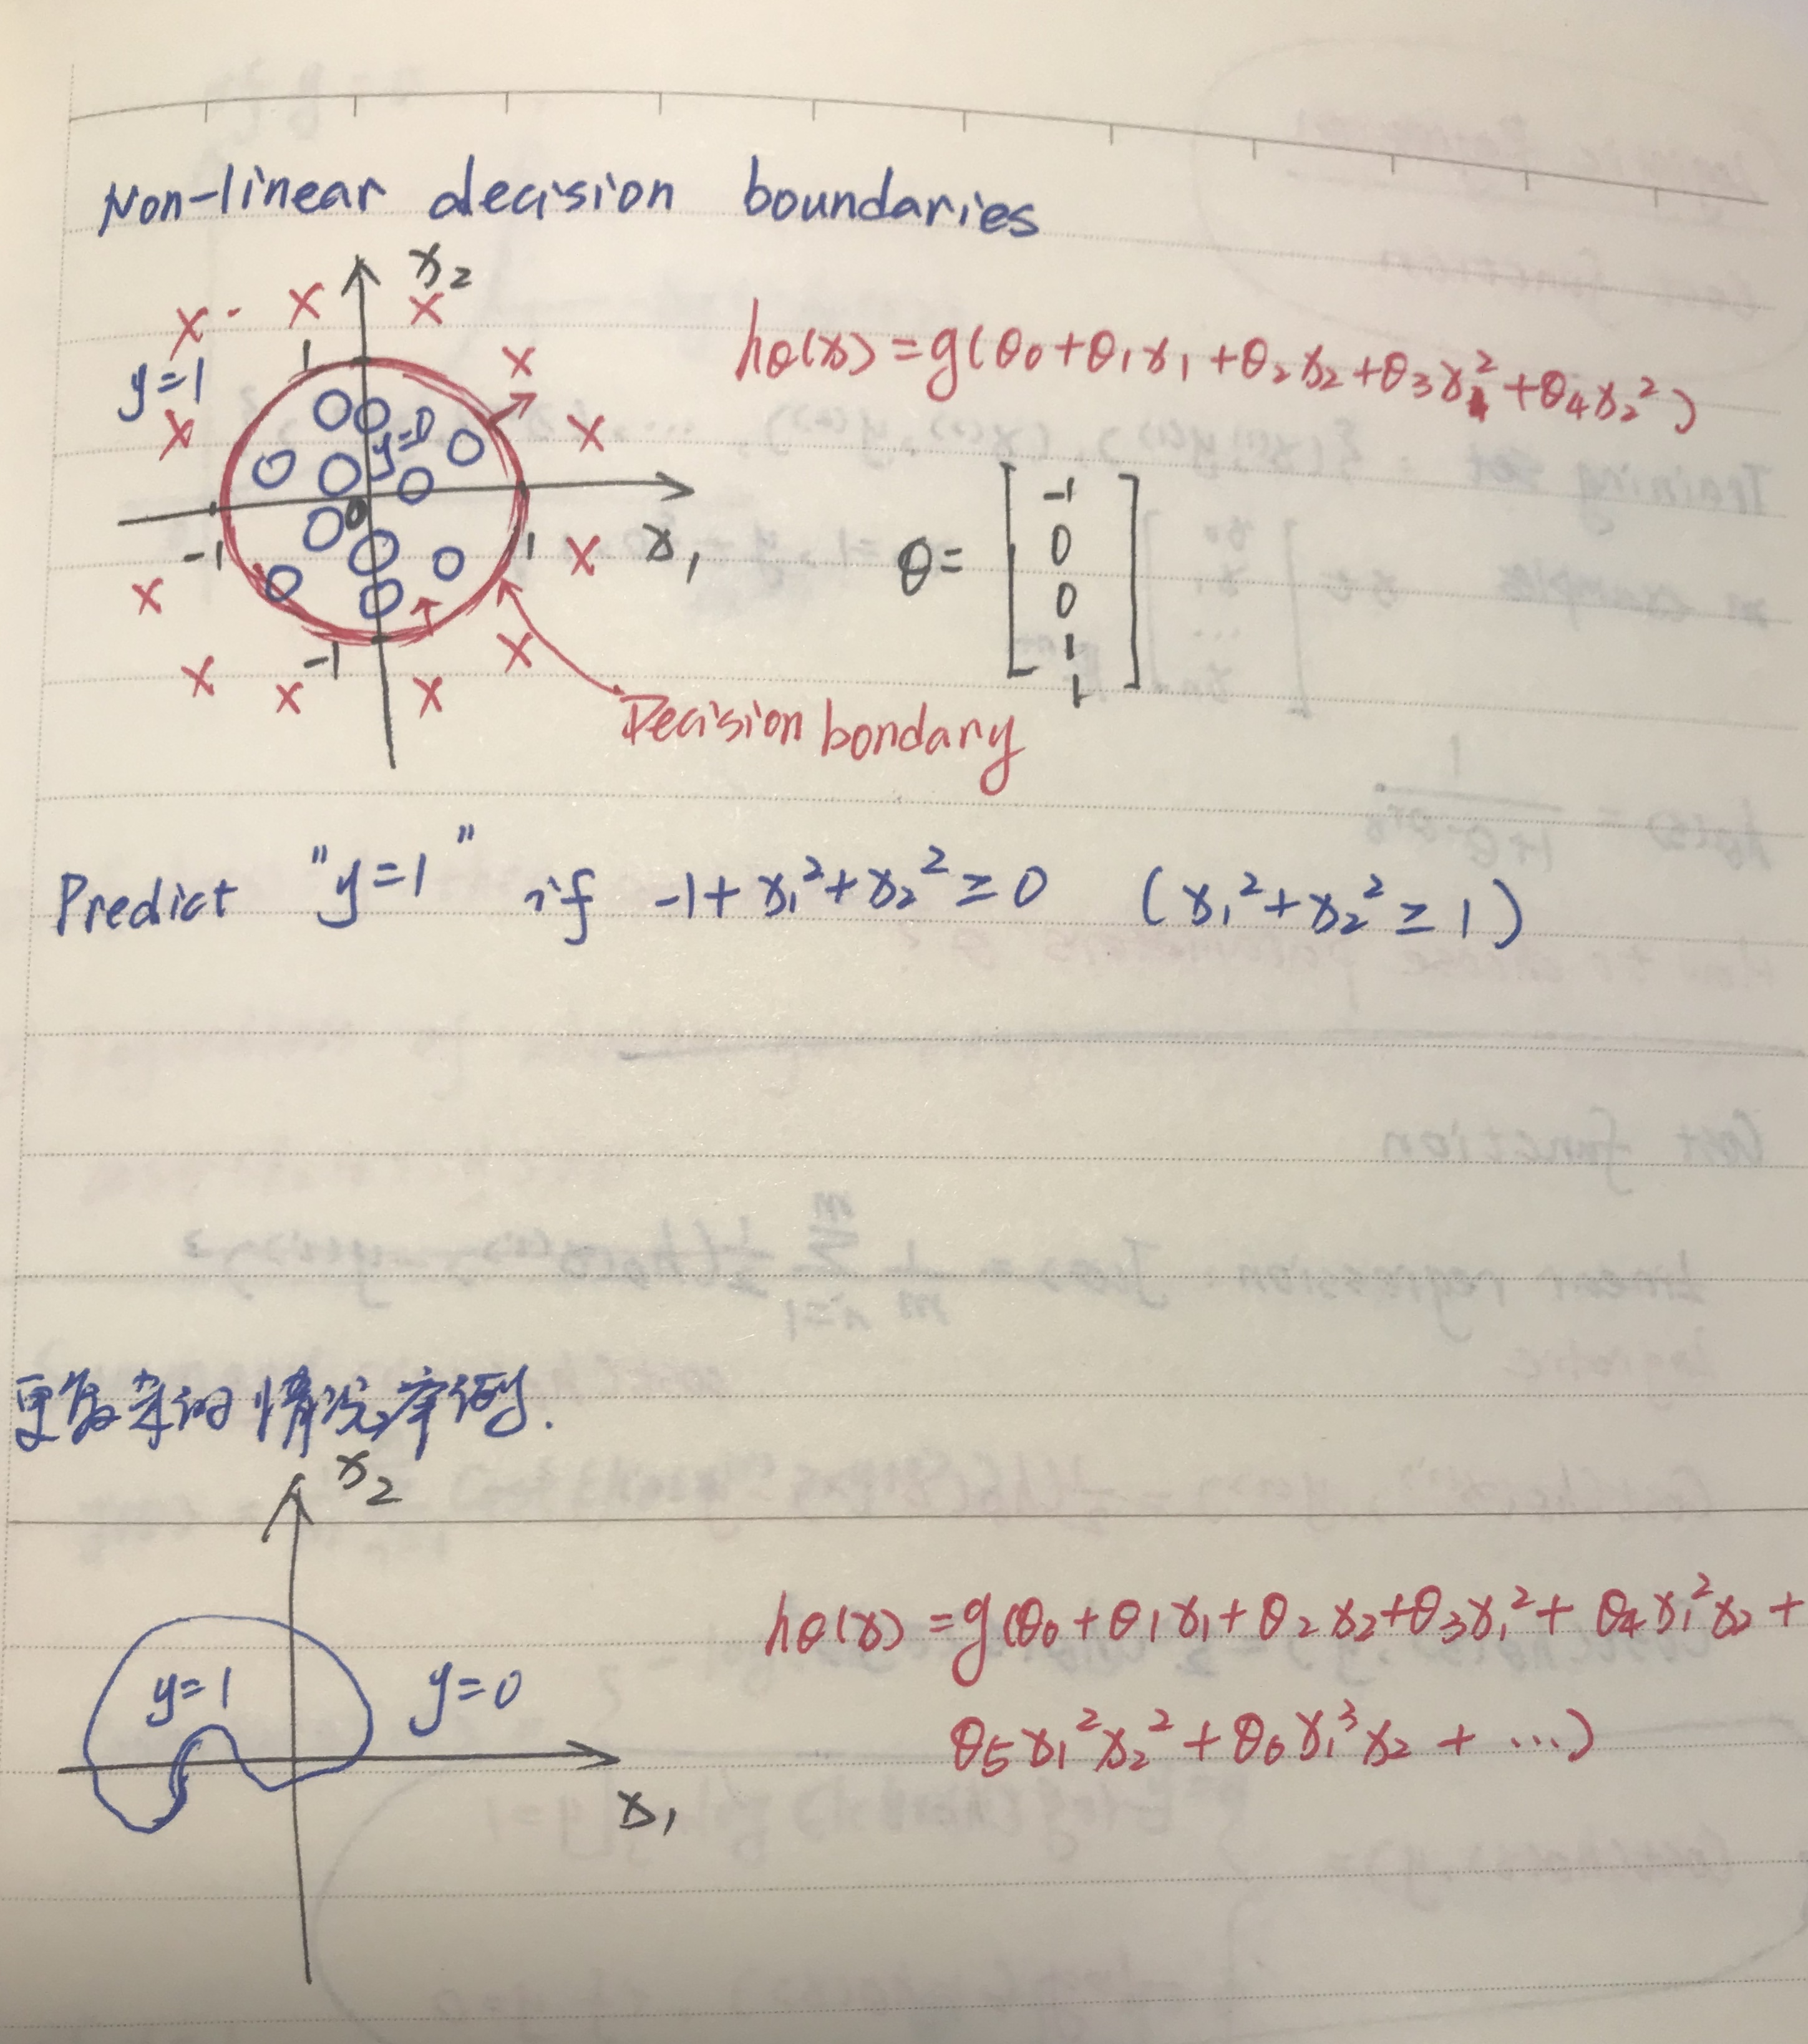 Non-linear decision boundaries
x₂
y=1
1
hθ(x) = g(θ₀+θ₁x₁+θ₂x₂+θ₃x₁²+θ₄x₂²)
y=0
0
-1
1
x₁
-1
θ= [-1
0
0
1
1]
Decision bondary
Predict "y=1" if -1+x₁²+x₂²≥0 (x₁²+x₂²≥1)
更复杂的情况举例.
x₂
hθ(x) = g(θ₀+θ₁x₁+θ₂x₂+θ₃x₁²+θ₄x₁²x₂+
y=1
y=0
θ₅x₁²x₂²+θ₆x₁³x₂+…)
x₁